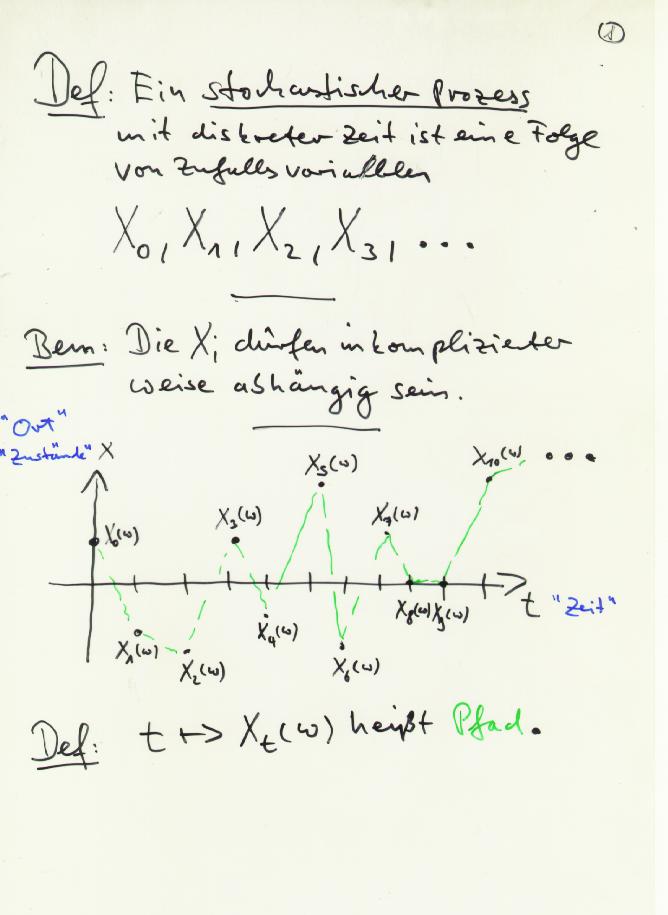 1
Def: Ein stochastischer Prozess
mit diskreter Zeit ist eine Folge
von Zufallsvariablen
X₀, X₁, X₂, X₃, ...
Bem: Die Xᵢ dürfen in komplizierter
weise abhängig sein.
"Ort"
"Zustände" X
X₅(ω)
X₁₀(ω) ...
X₀(ω)
X₃(ω)
X₇(ω)
X₁(ω)
X₂(ω)
X₄(ω)
X₆(ω)
X₈(ω) X₉(ω)
t "Zeit"
Def: t ↦ Xₜ(ω) heißt Pfad.